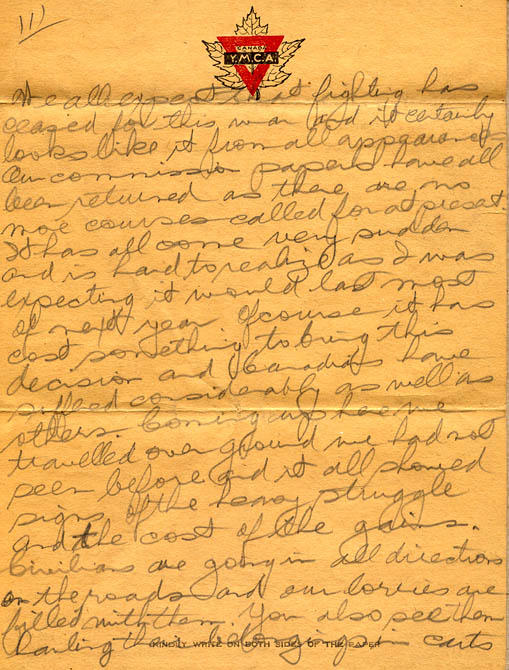 111)
CANADA
Y.M.C.A.
We all expect that fighting has
ceased for this war and it certainly
looks like it from all appearances
Our commission papers have all
been returned as there are no
more courses called for at present.
It has all come very sudden
and is hard to realize as I was
expecting it would last most
of next year. Of course it has
cost something to bring this
decision and Canadians have
suffered considerably as well as
others. Coming up here we
travelled over ground we had not
seen before and it all showed
signs of the heavy struggle
and the cost of the gains.
Civilians are going in all directions
on the roads and our lorries are
filled with them. You also see them
hauling their belongings in carts
KINDLY WRITE ON BOTH SIDES OF THE PAPER